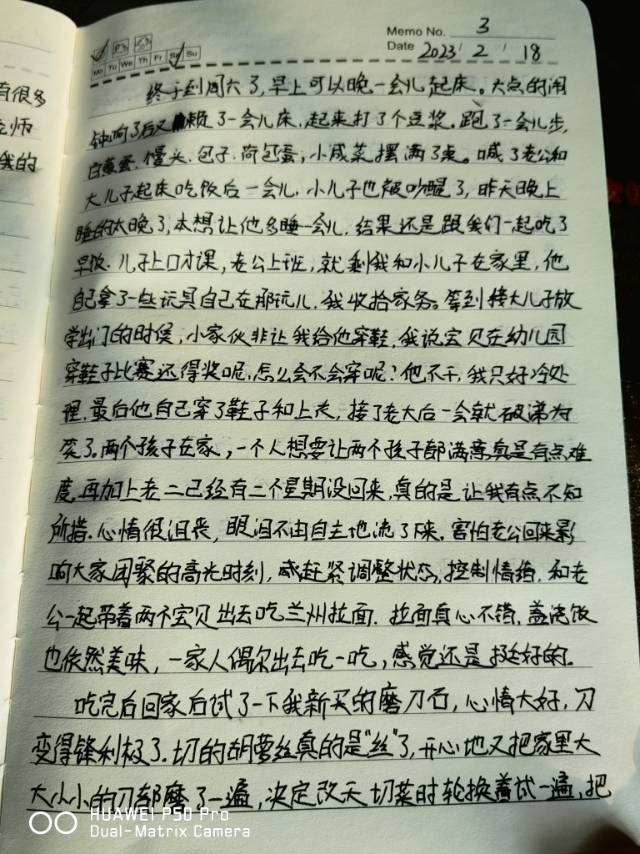 有很多
老师
我的
Memo No. 3
Mo Tu We Th Fr Sa Su
Date 2023 / 2 / 18
终于到周六了,早上可以晚一会儿起床。六点的闹
钟响了后又赖了一会儿床,起来打了个豆浆。跑了一会儿步,
白煮蛋、馒头、包子、荷包蛋,小咸菜摆满了桌。喊了老公和
大儿子起床吃饭后一会儿,小儿子也被吵醒了,昨天晚上
睡的太晚了,本想让他多睡一会儿,结果还是跟我们一起吃了
早饭。儿子上口才课,老公上班,就剩我和小儿子在家里,他
自己拿了一些玩具自己在那玩儿,我收拾家务。等到接大儿子放
学出门的时侯,小家伙非让我给他穿鞋,我说宝贝在幼儿园
穿鞋子比赛还得奖呢,怎么会不会穿呢?他不干,我只好冷处
理,最后他自己穿了鞋子和上衣,接了老大后一会就破涕为
笑了。两个孩子在家,一个人想要让两个孩子都满意真是有点难
度,再加上老二已经有二个星期没回来,真的是让我有点不知
所措,心情很沮丧,眼泪不由自主地流了下来。害怕老公回来影
响大家团聚的高光时刻,我赶紧调整状态,控制情绪,和老
公一起带着两个宝贝出去吃兰州拉面,拉面真心不错,盖浇饭
也依然美味,一家人偶尔出去吃一吃,感觉还是挺好的。
吃完后回家后试了一下我新买的磨刀石,心情大好,刀
变得锋利极了。切的胡萝丝真的是“丝”了,开心地又把家里大
大小小的刀都磨了一遍,决定改天切菜时轮换着试一遍,把
HUAWEI P50 Pro
Dual-Matrix Camera